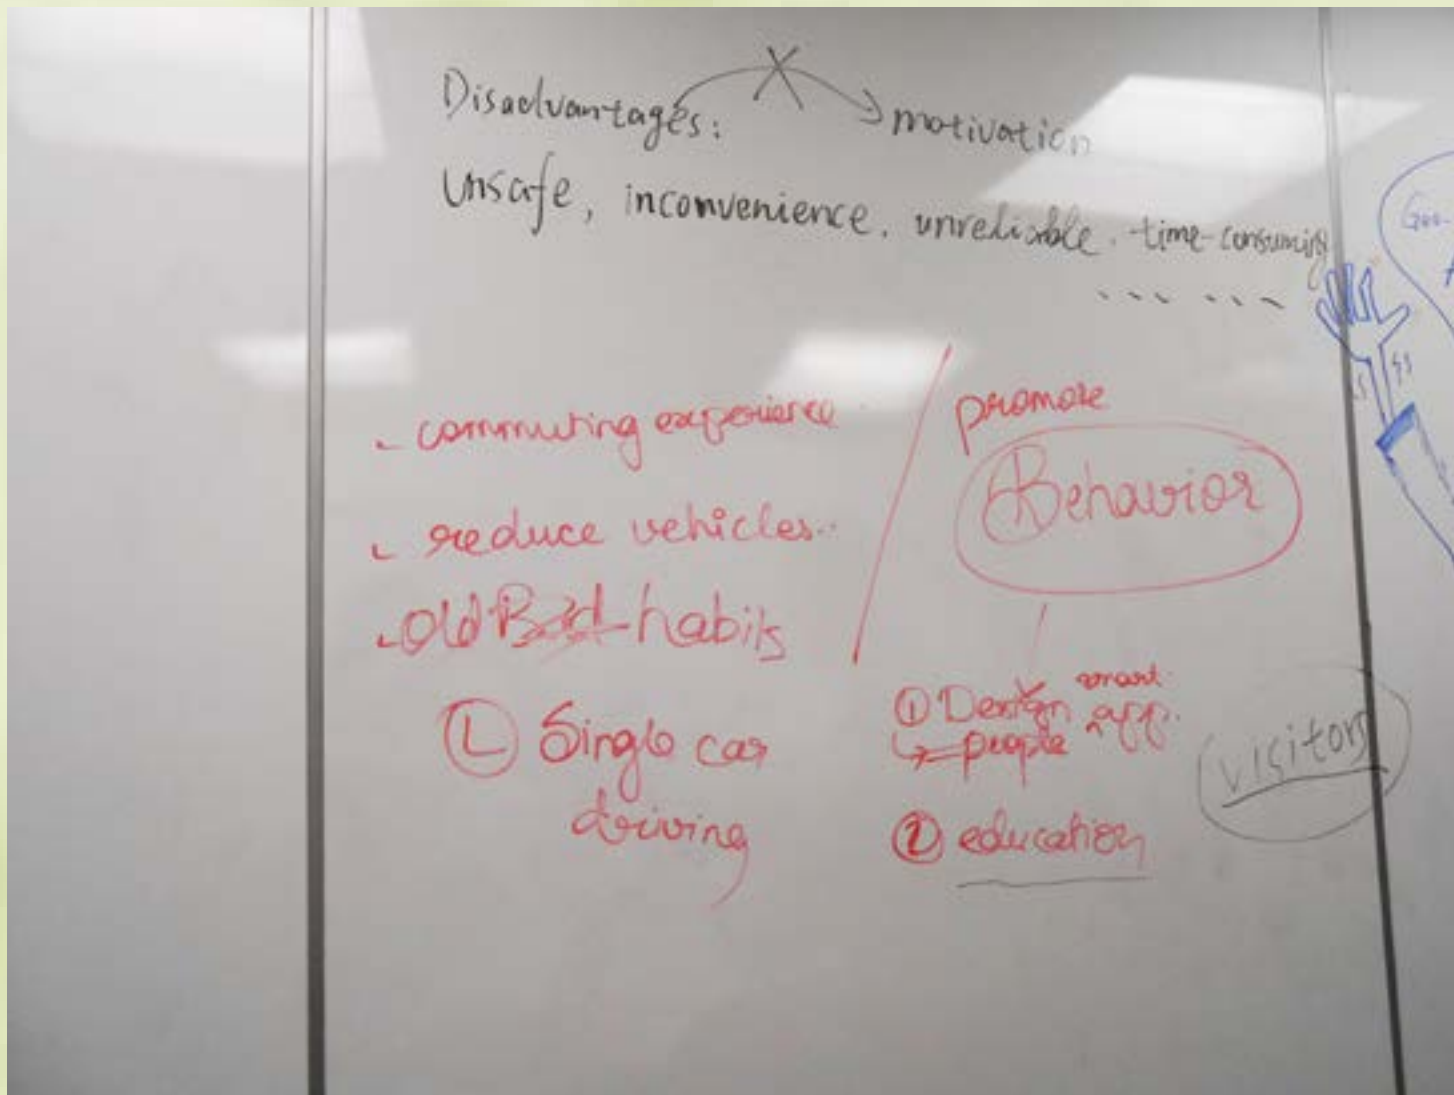 Disadvantages: motivation
Unsafe, inconvenience, unreliable, time-consuming
... ...
- commuting experience
- reduce vehicles..
- Old Bad habits
L Single car
driving
promote
Behavior
① Design smart app.
↳ people
② education
visitors